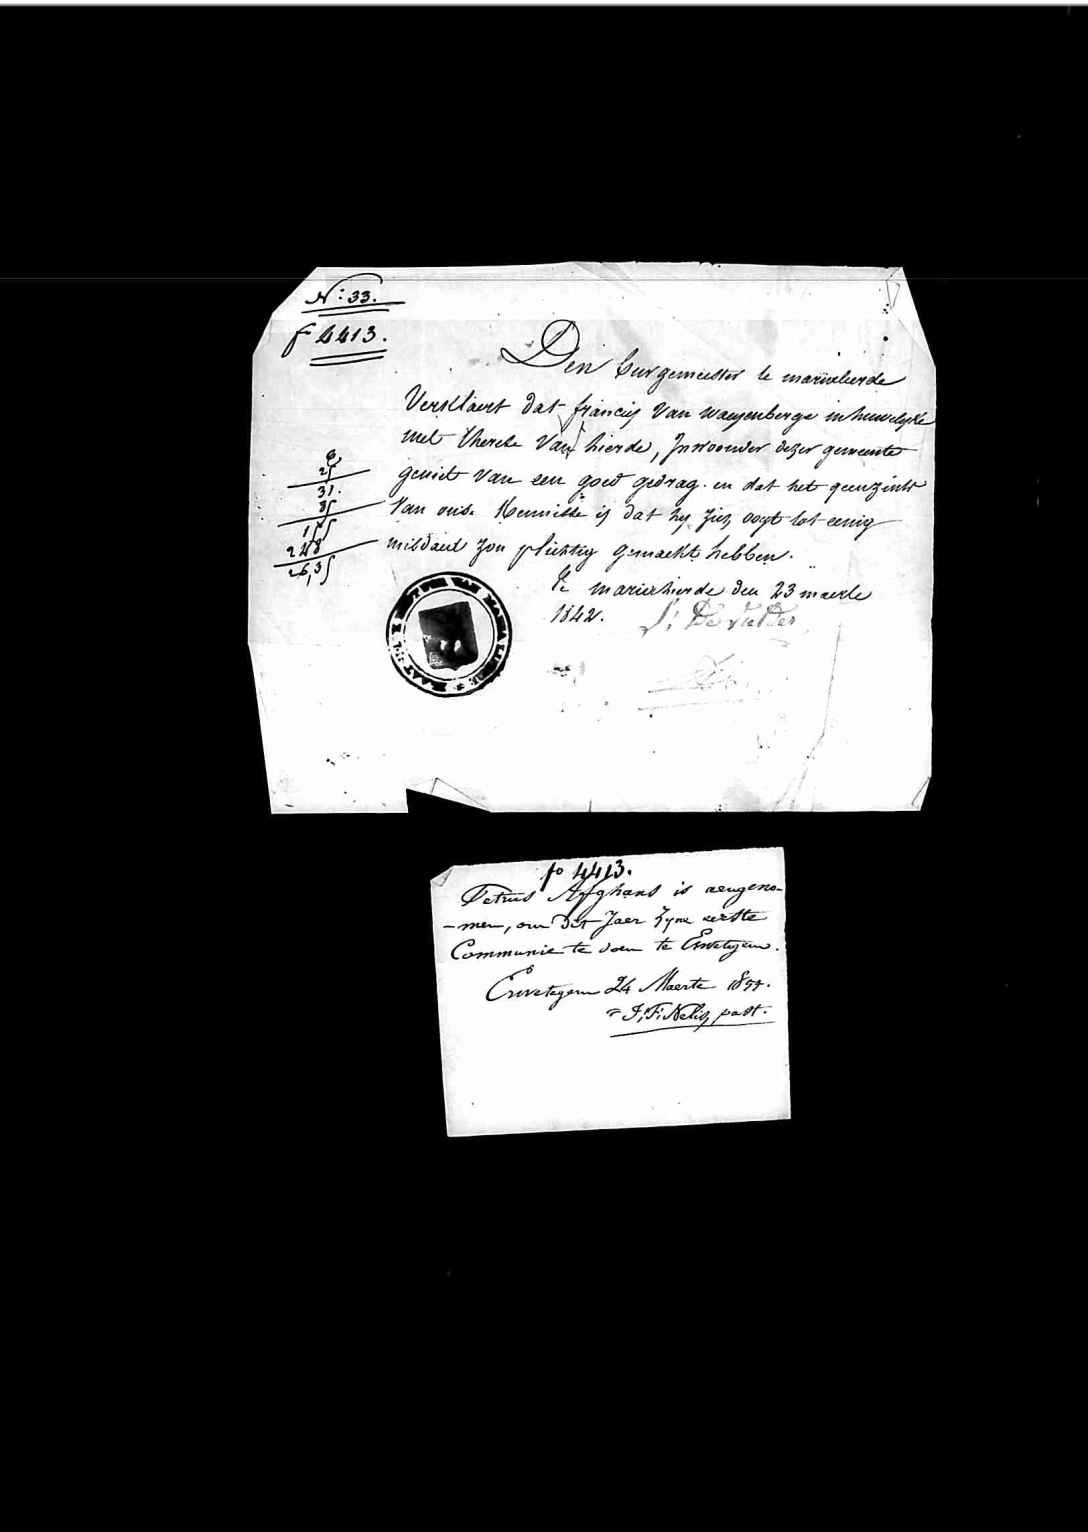 N: 33.
f 4413.
Den burgemeester te marielierde
Verklaert dat francies Van Waeyenberge in huwelyke
met therese Van lierde, Inwoonder dezer gemeente
geniet van een goed gedrag. en dat het geenzints
Van onse Kennisse is dat hy zich ooyt tot eenig
misdaed zou plichtig gemaekt hebben.
25
31.
85
155
248
26,35
Te marielierde den 23 maerte
1842. De Vulder
fo 4413.
Petrus Afghans is aengeno-
-men, om dit Jaer Zyne eerste
Communie te doen te Erwetegem.
Erwetegem 24 Maerte 1854.
J: F: Nelis, past.